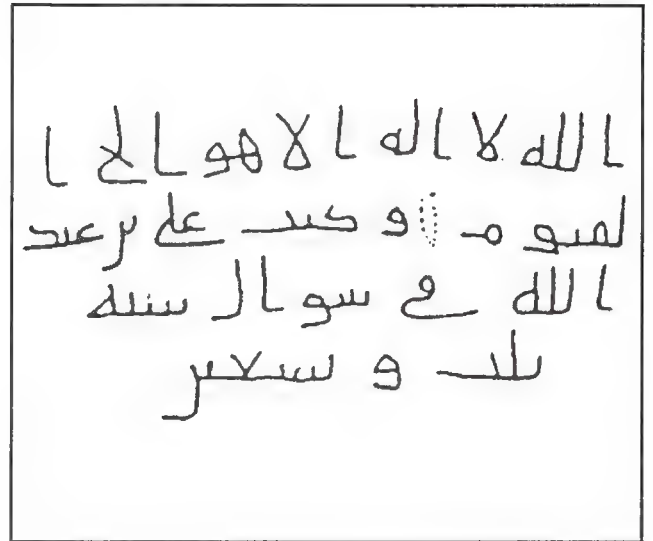 الله لا اله الا هو الحي ا
لقيوم و كتب علي بن عبد
الله في شوال سنه
ثلث و تسعين